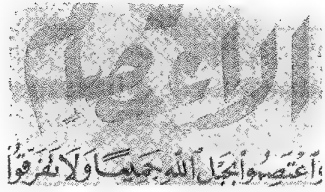 الاعتصام
وَٱعْتَصِمُوا۟ بِحَبْلِ ٱللَّهِ جَمِيعًا وَلَا تَفَرَّقُوا۟